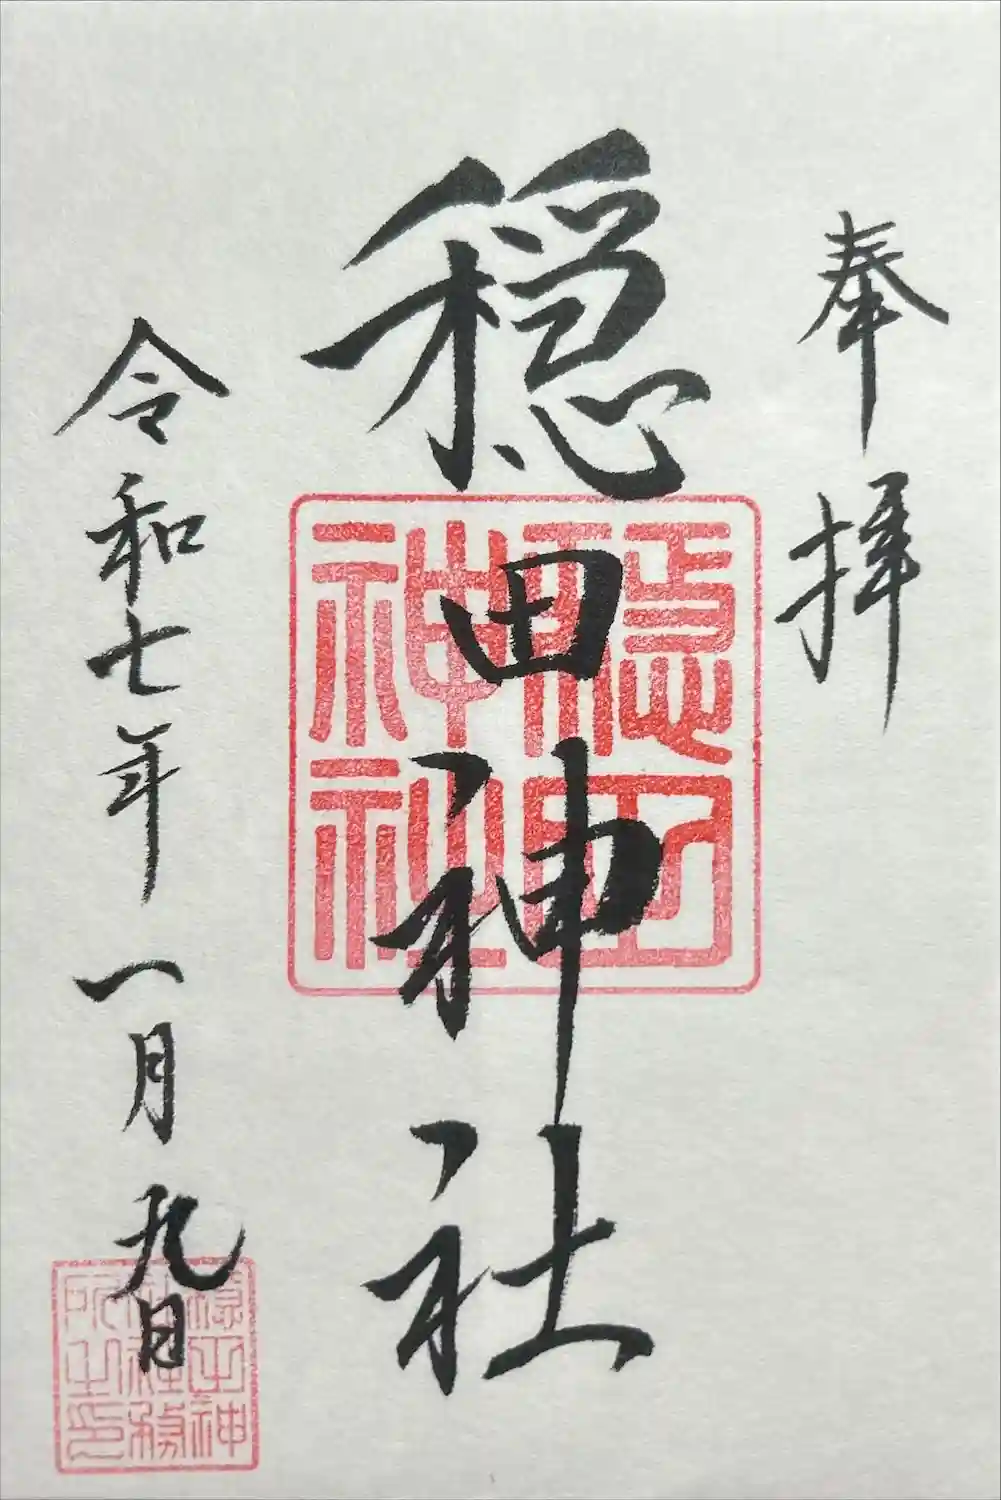 奉拝
穏田神社
穏田神社
令和七年一月九日
穏田神社社務所之印